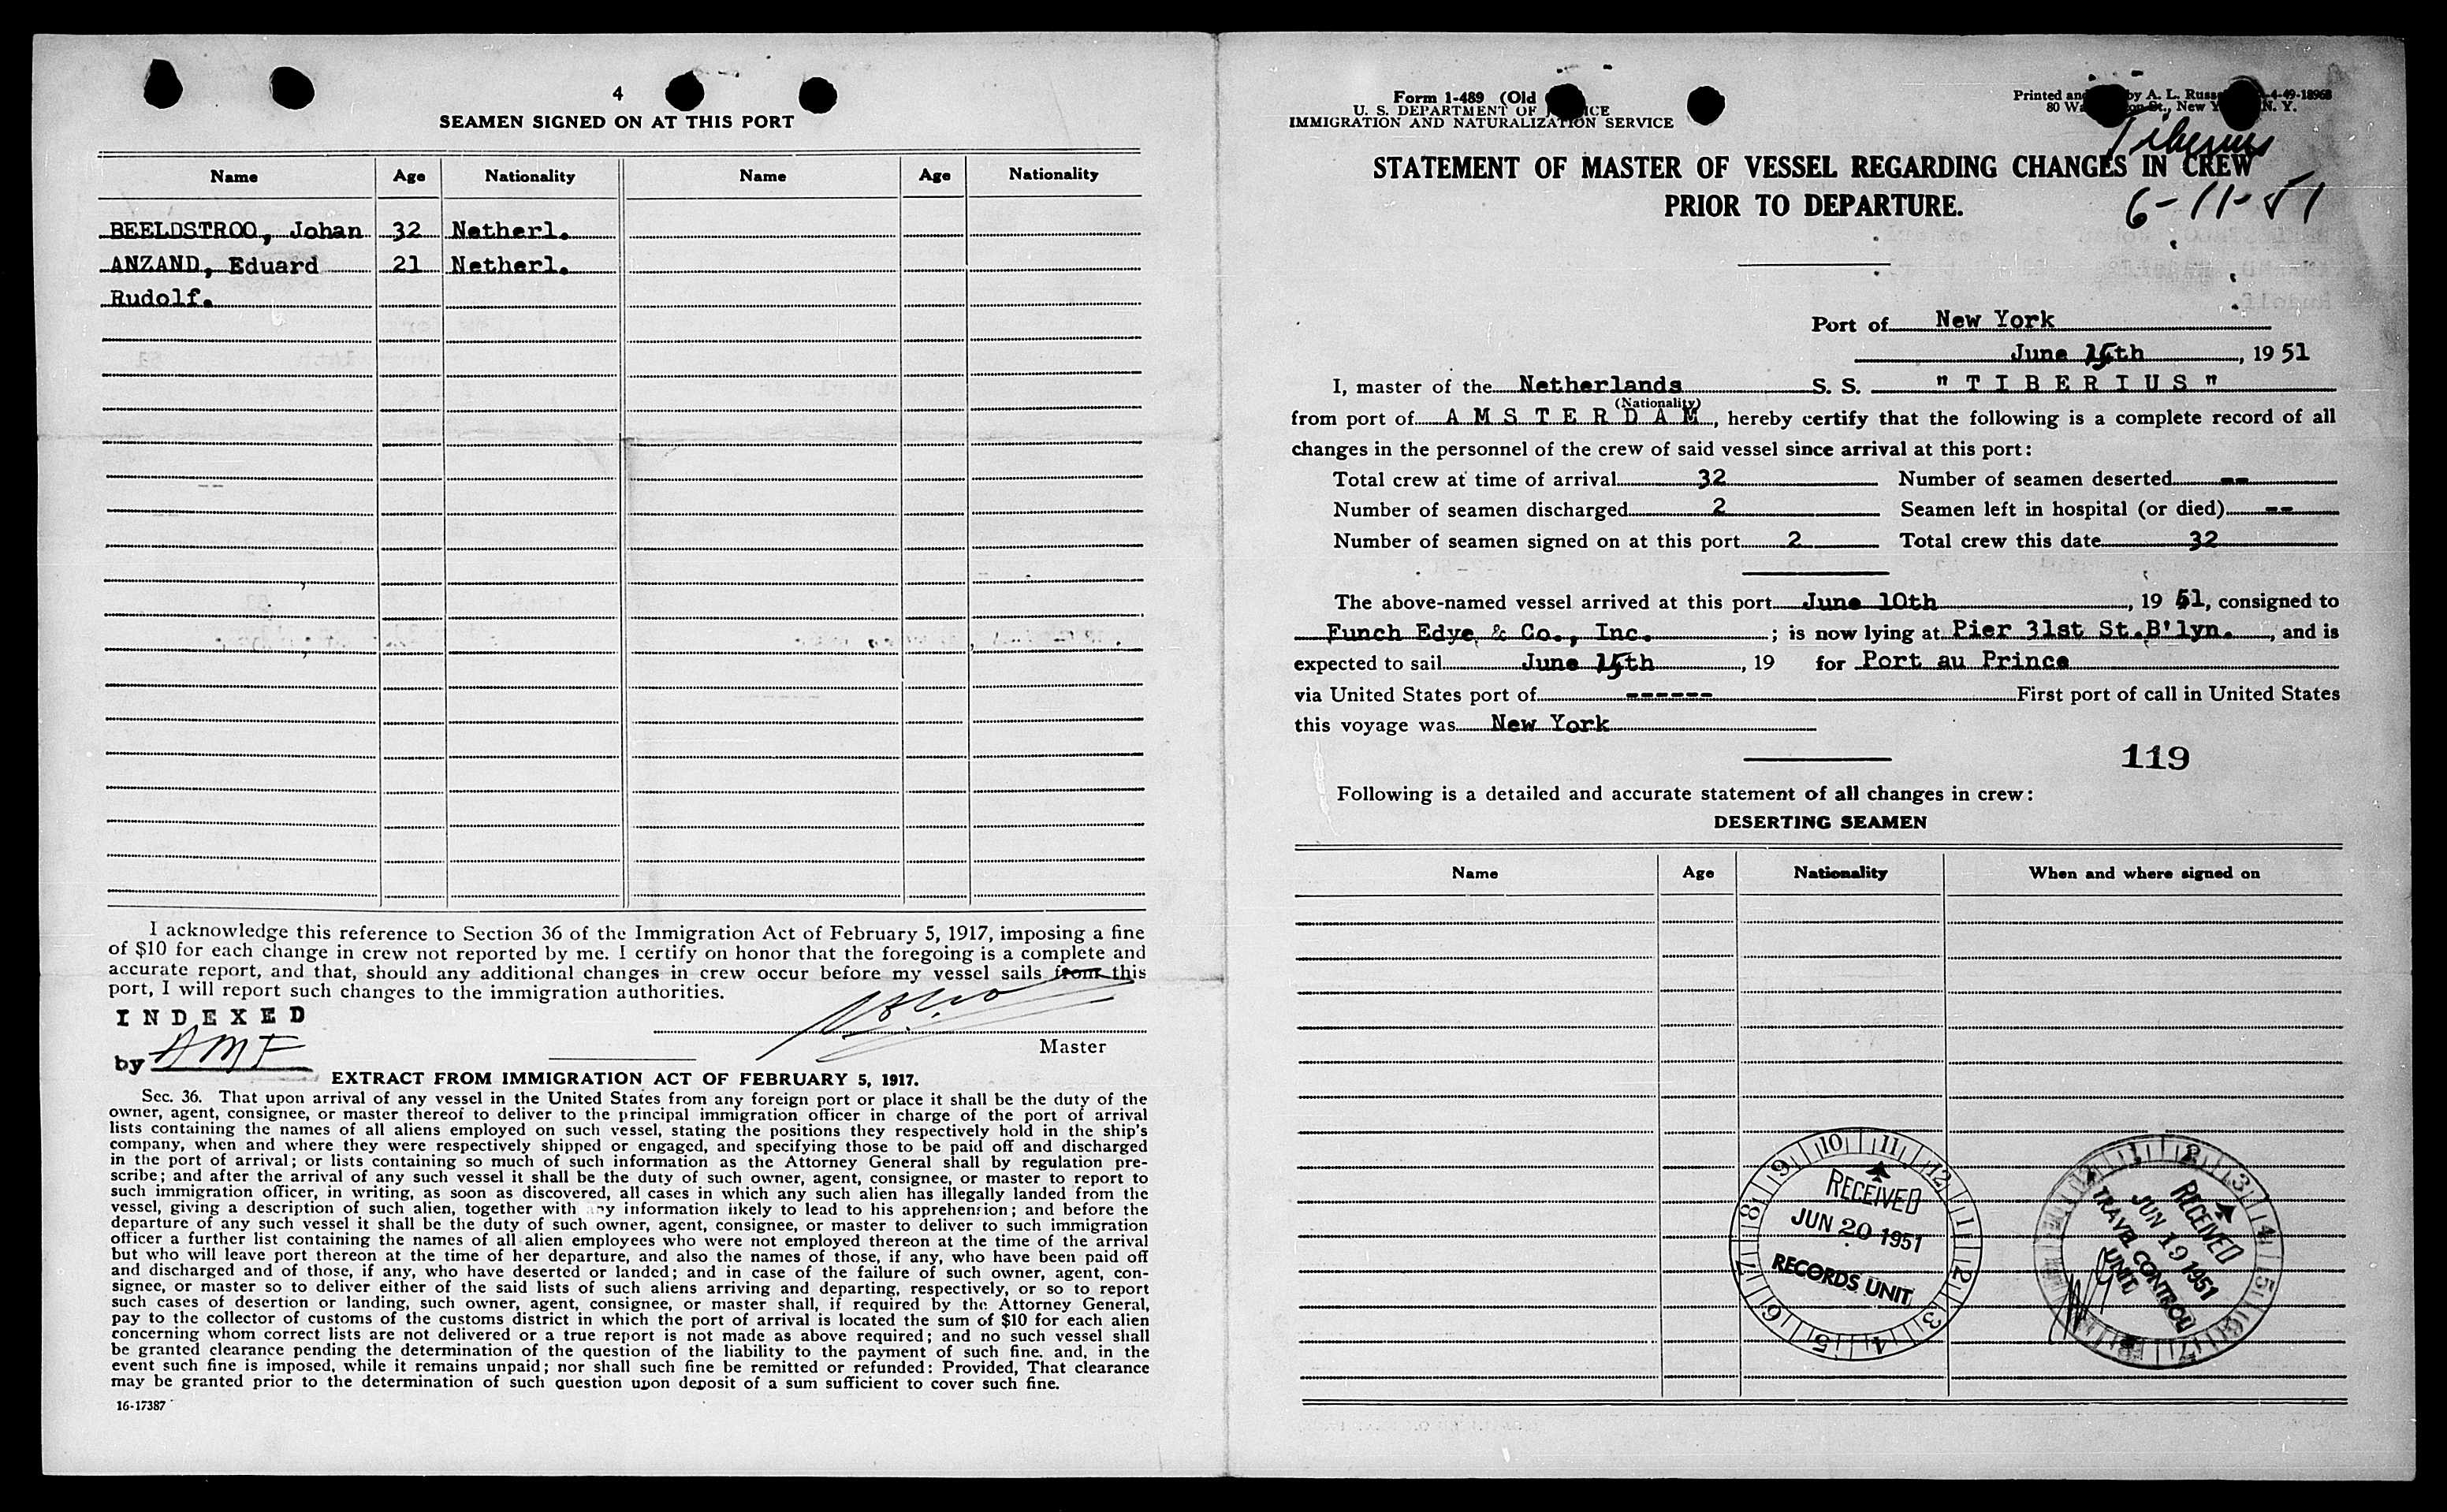 4
SEAMEN SIGNED ON AT THIS PORT
Name Age Nationality Name Age Nationality
BEELDSTROO, Johan 32 Netherl.
ANZAND, Eduard 21 Netherl.
Rudolf.
I acknowledge this reference to Section 36 of the Immigration Act of February 5, 1917, imposing a fine
of $10 for each change in crew not reported by me. I certify on honor that the foregoing is a complete and
accurate report, and that, should any additional changes in crew occur before my vessel sails from this
port, I will report such changes to the immigration authorities.
INDEXED
by AMF
Master
EXTRACT FROM IMMIGRATION ACT OF FEBRUARY 5, 1917.
Sec. 36. That upon arrival of any vessel in the United States from any foreign port or place it shall be the duty of the
owner, agent, consignee, or master thereof to deliver to the principal immigration officer in charge of the port of arrival
lists containing the names of all aliens employed on such vessel, stating the positions they respectively hold in the ship's
company, when and where they were respectively shipped or engaged, and specifying those to be paid off and discharged
in the port of arrival; or lists containing so much of such information as the Attorney General shall by regulation pre-
scribe; and after the arrival of any such vessel it shall be the duty of such owner, agent, consignee, or master to report to
such immigration officer, in writing, as soon as discovered, all cases in which any such alien has illegally landed from the
vessel, giving a description of such alien, together with any information likely to lead to his apprehension; and before the
departure of any such vessel it shall be the duty of such owner, agent, consignee, or master to deliver to such immigration
officer a further list containing the names of all alien employees who were not employed thereon at the time of the arrival
but who will leave port thereon at the time of her departure, and also the names of those, if any, who have been paid off
and discharged and of those, if any, who have deserted or landed; and in case of the failure of such owner, agent, con-
signee, or master so to deliver either of the said lists of such aliens arriving and departing, respectively, or so to report
such cases of desertion or landing, such owner, agent, consignee, or master shall, if required by the Attorney General,
pay to the collector of customs of the customs district in which the port of arrival is located the sum of $10 for each alien
concerning whom correct lists are not delivered or a true report is not made as above required; and no such vessel shall
be granted clearance pending the determination of the question of the liability to the payment of such fine. and, in the
event such fine is imposed, while it remains unpaid; nor shall such fine be remitted or refunded: Provided, That clearance
may be granted prior to the determination of such question upon deposit of a sum sufficient to cover such fine.
16-17387
Form 1-489 (Old
U. S. DEPARTMENT OF
IMMIGRATION AND NATURALIZATION SERVICE
Printed and by A. L. 4-49-18968
80 St., New N. Y.
Tiberius
STATEMENT OF MASTER OF VESSEL REGARDING CHANGES IN CREW
PRIOR TO DEPARTURE.
6-11-51
Port of New York
June 15th, 1951
I, master of the Netherlands S. S. "TIBERIUS"
(Nationality)
from port of AMSTERDAM, hereby certify that the following is a complete record of all
changes in the personnel of the crew of said vessel since arrival at this port:
Total crew at time of arrival 32 Number of seamen deserted --
Number of seamen discharged 2 Seamen left in hospital (or died) --
Number of seamen signed on at this port 2 Total crew this date 32
The above-named vessel arrived at this port June 10th, 1951, consigned to
Funch Edye & Co., Inc. ; is now lying at Pier 31st St.B'lyn., and is
expected to sail June 15th, 19 for Port au Prince
via United States port of ------ First port of call in United States
this voyage was New York
119
Following is a detailed and accurate statement of all changes in crew:
DESERTING SEAMEN
Name Age Nationality When and where signed on
RECEIVED
JUN 20 1951
RECORDS UNIT
RECEIVED
JUN 19 1951
TRAVEL CONTROL
UNIT